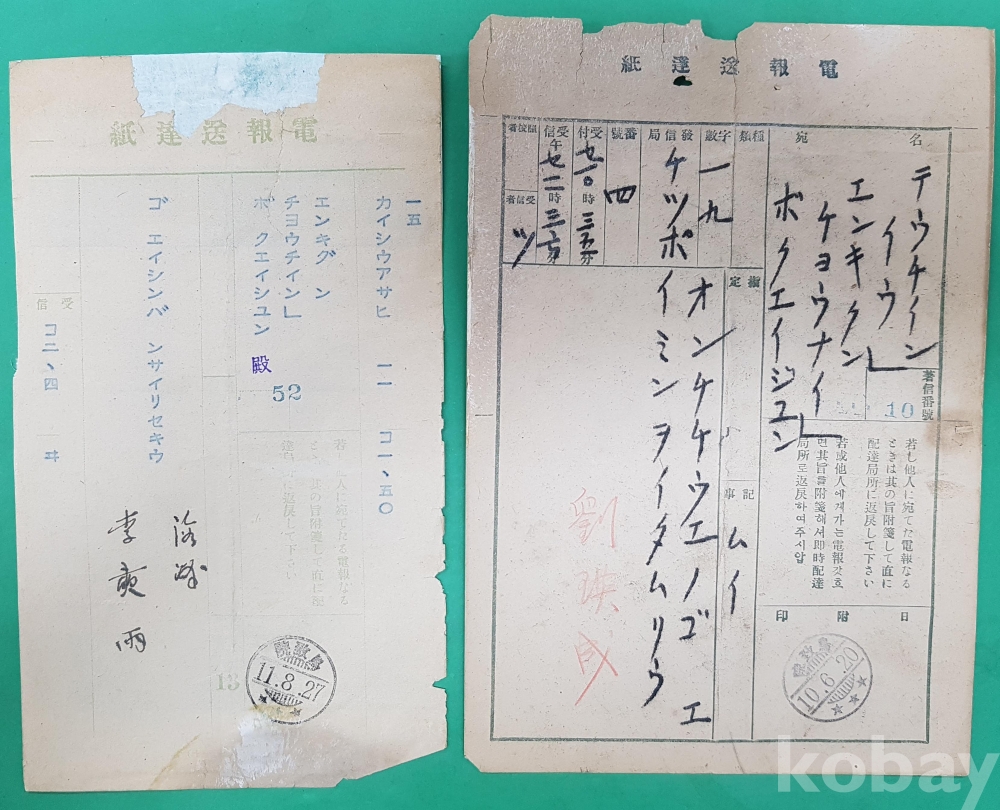 電報送達紙
一五
カイシウアサヒ 一一 コ一、五〇
エンキグ ン
チヨウチイン」
ボ クエイシユン 殿
52
ゴ エイシンバ ンサイリセキウ
受信
コ二、四 ヰ
李
雨
若
人に宛てたる電報なる
に返戻して下さい
13
鳥致院
11.8.27
電報送達紙
名
宛
テウチイン
イウ」
エンキクン
ケヨウナイ」
ボクエイジユン
著信番號
10
種類
字數
一九
發信局
ケツポ
番號
四
受付
時
受信
午
時
受信者
ツ
指定
記事
ムイ
オンケケウエノゴ エ
イミンヲイタムリウ
若し他人に宛てた電報なる
ときは其の旨附箋して直に
配達局所に返戻して下さい
若或他人에게가는電報갓흐
면其旨를附箋해서卽時配達
局所로返戻하여주시압
日附印
鳥致院
10.6.20
劉
成
kobay